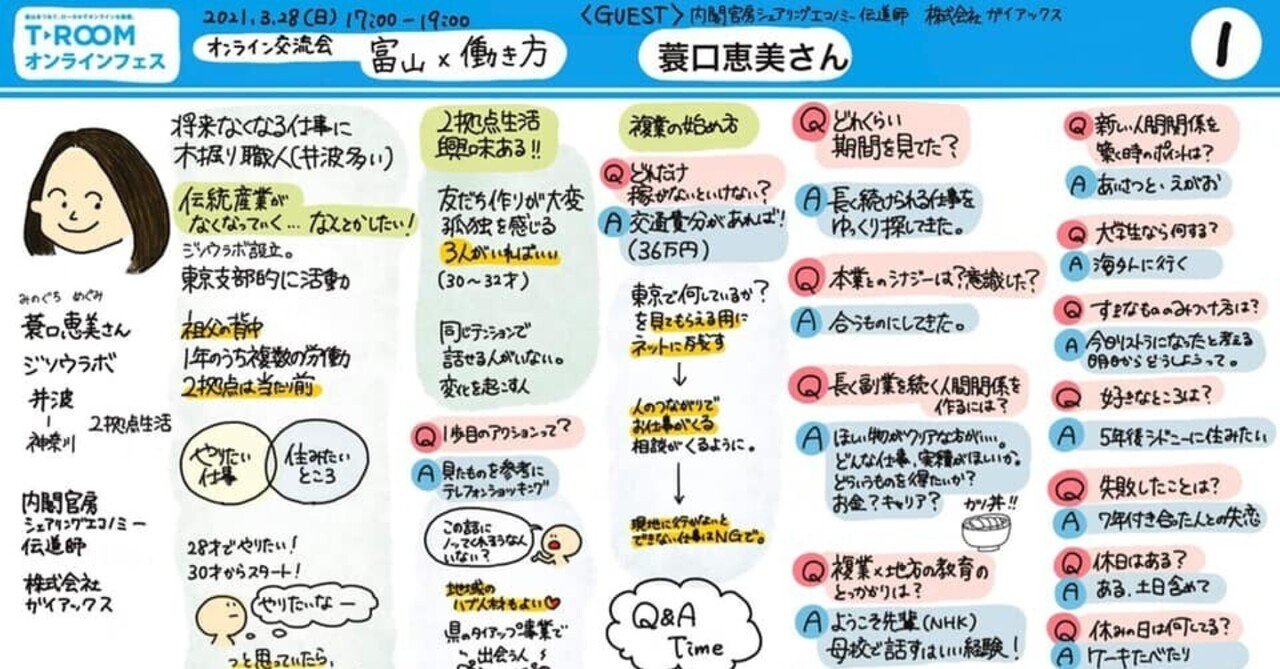 T▶ROOM
オンラインフェス
2021.3.28(日) 17:00-19:00
オンライン交流会
富山×働き方
〈GUEST〉内閣官房シェアリングエコノミー伝道師 株式会社ガイアックス
蓑口恵美さん
1
みのぐち めぐみ
蓑口恵美さん
ジソウラボ
井波
-
神奈川
2拠点生活
内閣官房
シェアリングエコノミー
伝道師
株式会社
ガイアックス
将来なくなる仕事に
木掘り職人(井波多い)
伝統産業が
なくなっていく…なんとかしたい!
ジソウラボ設立。
東京支部的に活動
祖父の背中
1年のうち複数の労働
2拠点は当たり前
やりたい
仕事
住みたい
ところ
28才でやりたい!
30才からスタート!
やりたいなー
っと思っていたら、
2拠点生活
興味ある!!
友だち作りが大変
孤独を感じる
3人がいればいい
(30〜32才)
同じテンションで
話せる人がいない。
変化を起こす人
Q 1歩目のアクションって?
A 見たものを参考に
テレフォンショッキング
この話に
ノッてくれそうな人
いない?
地域の
ハブ人材もよい♥
県のタイアップ事業で
出会う人
複業の始め方
Q どれだけ
稼がないといけない?
A 交通費分があれば!
(36万円)
東京で何しているか?
を見てもらえる用に
ネットに残す
↓
人のつながりで
お仕事がくる
相談がくるように。
↓
現地に行かないと
できない仕事はNGで。
Q&A
Time
Q どれくらい
期間を見てた?
A 長く続けられる仕事を
ゆっくり探してきた。
Q 本業とのシナジーは?意識した?
A 合うものにしてきた。
Q 長く副業を続く人間関係を
作るには?
A ほしい物がクリアな方がいい。
どんな仕事、実績がほしいか。
どういうものを得たいか?
お金?キャリア?
カツ丼!!
Q 複業×地方の教育の
とっかかりは?
A ようこそ先輩(NHK)
母校で話すはいい経験!
Q 新しい人間関係を
築く時のポイントは?
A あいさつと、えがお
Q 大学生なら何する?
A 海外に行く
Q すきなもののみつけ方は?
A 今日リストラになったと考える
明日からどうしようって。
Q 好きなところは?
A 5年後シドニーに住みたい
Q 失敗したことは?
A 7年付き合った人との失恋
Q 休日はある?
A ある、土日含めて
Q 休みの日は何してる?
A ケーキたべたり